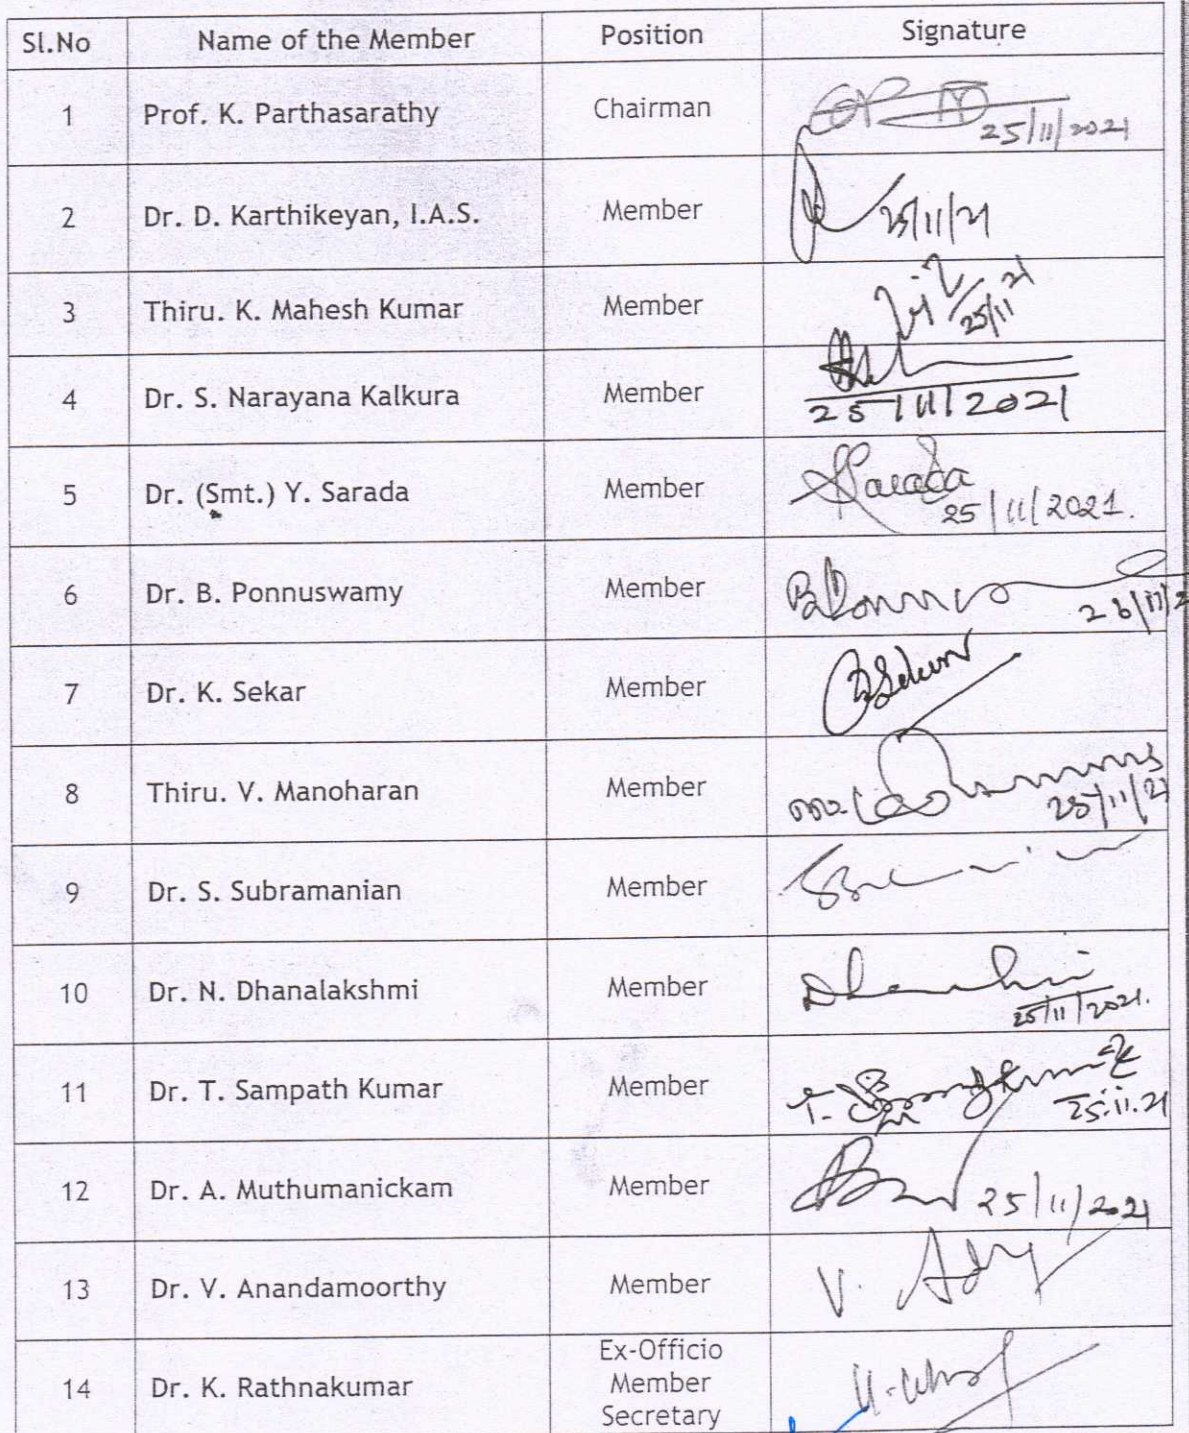 Sl.No Name of the Member Position Signature
1 Prof. K. Parthasarathy Chairman
25/11/2021
2 Dr. D. Karthikeyan, I.A.S. Member
25/11/21
3 Thiru. K. Mahesh Kumar Member
25/11/21
4 Dr. S. Narayana Kalkura Member
25/11/2021
5 Dr. (Smt.) Y. Sarada Member Sarada
25/11/2021.
6 Dr. B. Ponnuswamy Member
7 Dr. K. Sekar Member
8 Thiru. V. Manoharan Member
25/11/21
9 Dr. S. Subramanian Member
10 Dr. N. Dhanalakshmi Member
25/11/2021.
11 Dr. T. Sampath Kumar Member
25.11.21
12 Dr. A. Muthumanickam Member
25/11/2021
13 Dr. V. Anandamoorthy Member V.
Ex-Officio
14 Dr. K. Rathnakumar Member
Secretary